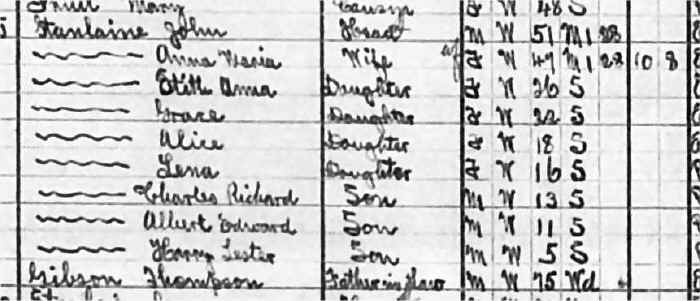 Mary Cousin F W 48 S
5 Stanlaine John Head M W 51 M1 28
Anna Maria Wife F W 47 M1 28 10 8
Edith Anna Daughter F W 26 S
Grace Daughter F W 22 S
Alice Daughter F W 18 S
Lena Daughter F W 16 S
Charles Richard Son M W 13 S
Albert Edward Son M W 11 S
Harry Lester Son M W 5 S
Gibson Thompson Father in Law M W 75 Wd